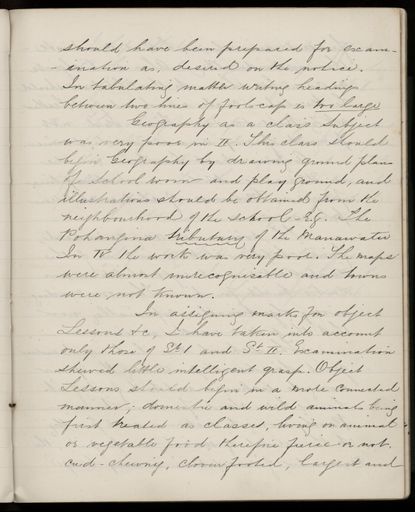 should have been prepared for exam-
-ination as, desired on the notice.
In tabulating matter writing headings
between two lines of foolscap is too large
Geography as a class subject
was very poor in II. This class should
begin Geography by drawing ground plans
of School room and play ground, and
illustrations should be obtained from the
neighbourhood of the school - E.g. The
Pohangina tributary of the Manawatu
In IV the work was very poor. The maps
were almost unrecognisable and towns
were not known.
In assigning marks for object
Lessons &c, I have taken into account
only those of St I and St II. Examination
shewed little intelligent grasp. Object
Lessons should begin in a more connected
manner; domestic and wild animals being
first treated as classes, living on animal
or vegetable food therefore fierce or not.
cud-chewing, cloven footed, largest and